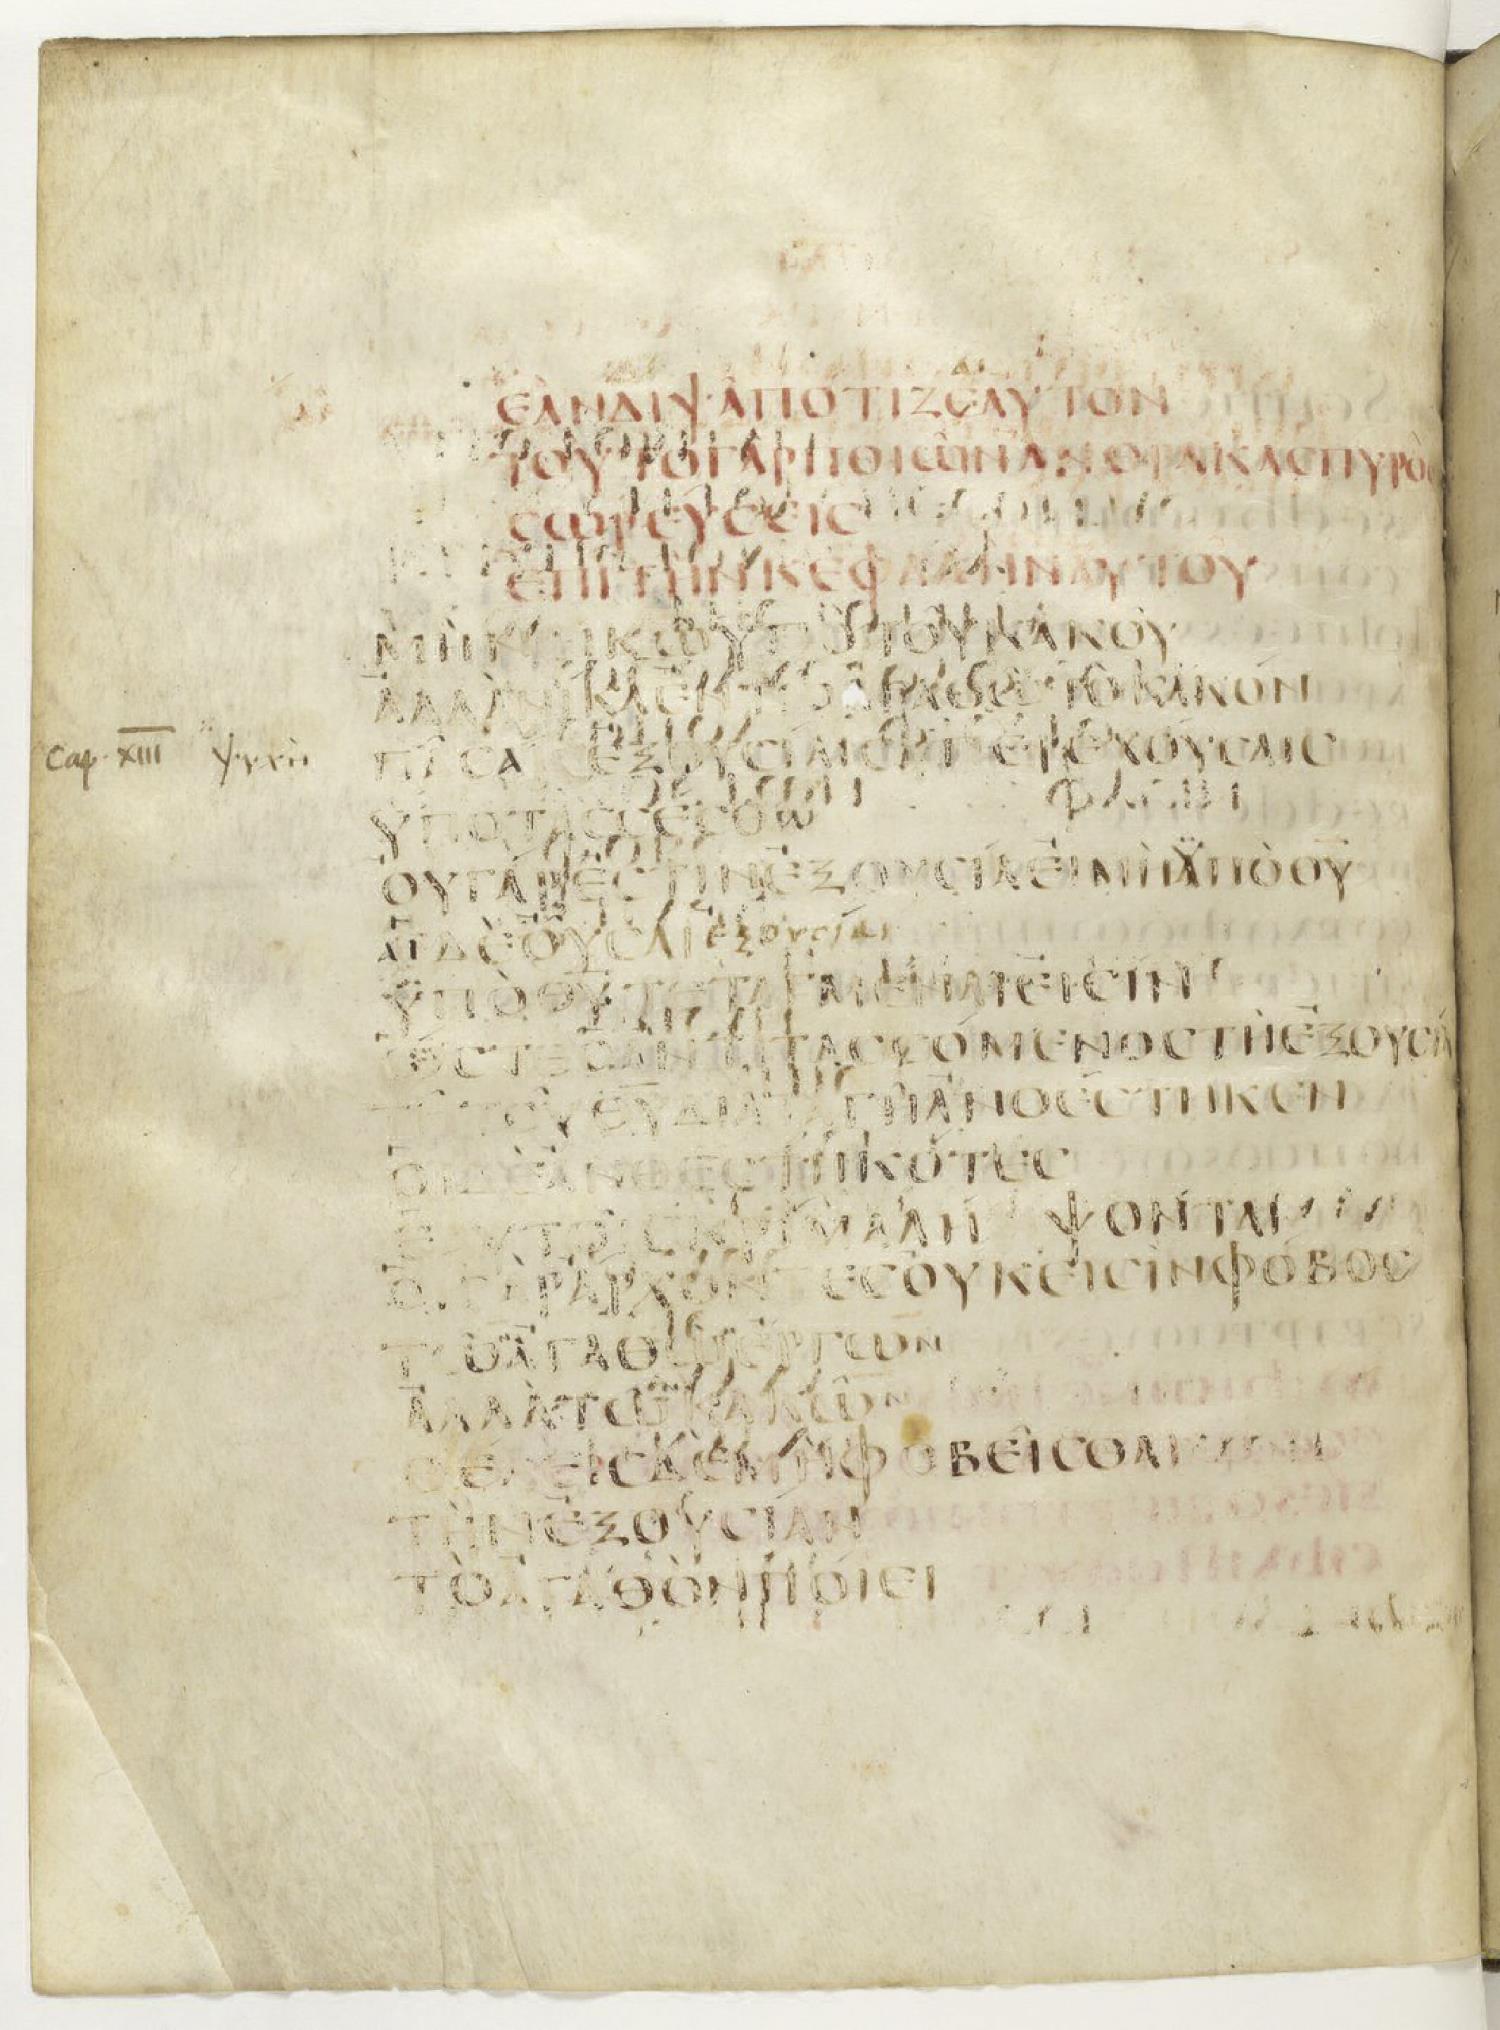 ΕΑΝΔΙΨΑ ΠΟΤΙΖΕ ΑΥΤΟΝ
ΤΟΥΤΟ ΓΑΡ ΠΟΙΩΝ ΑΝΘΡΑΚΑΣ ΠΥΡΟΣ
ΣΩΡΕΥΣΕΙΣ
ΕΠΙ ΤΗΝ ΚΕΦΑΛΗΝ ΑΥΤΟΥ
ΜΗ ΝΙΚΩ ΥΠΟ ΤΟΥ ΚΑΚΟΥ
ΑΛΛΑ ΝΙΚΑ ΕΝ ΤΩ ΑΓΑΘΩ ΤΟ ΚΑΚΟΝ
Cap. XIII ΠΑΣΑΙΣ ΕΞΟΥΣΙΑΙΣ ΥΠΕΡΕΧΟΥΣΑΙΣ
ΥΠΟΤΑΣΣΕΣΘΩ
ΟΥ ΓΑΡ ΕΣΤΙΝ ΕΞΟΥΣΙΑ ΕΙ ΜΗ ΥΠΟ ΘΥ
ΑΙ ΔΕ ΟΥΣΑΙ ἐξουσίαι
ΥΠΟ ΘΥ ΤΕΤΑΓΜΕΝΑΙ ΕΙΣΙΝ
ΩΣΤΕ Ο ΑΝΤΙΤΑΣΣΟΜΕΝΟΣ ΤΗ ΕΞΟΥΣΙΑ
ΤΗ ΤΟΥ ΘΥ ΔΙΑΤΑΓΗ ΑΝΘΕΣΤΗΚΕΝ
ΟΙ ΔΕ ΑΝΘΕΣΤΗΚΟΤΕΣ
ΕΑΥΤΟΙΣ ΚΡΙΜΑ ΛΗΜΨΟΝΤΑΙ
ΟΙ ΓΑΡ ΑΡΧΟΝΤΕΣ ΟΥΚ ΕΙΣΙΝ ΦΟΒΟΣ
ΤΩ ΑΓΑΘΩ ΕΡΓΩ
ΑΛΛΑ ΤΩ ΚΑΚΩ
ΘΕΛΕΙΣ ΔΕ ΜΗ ΦΟΒΕΙΣΘΑΙ
ΤΗΝ ΕΞΟΥΣΙΑΝ
ΤΟ ΑΓΑΘΟΝ ΠΟΙΕΙ